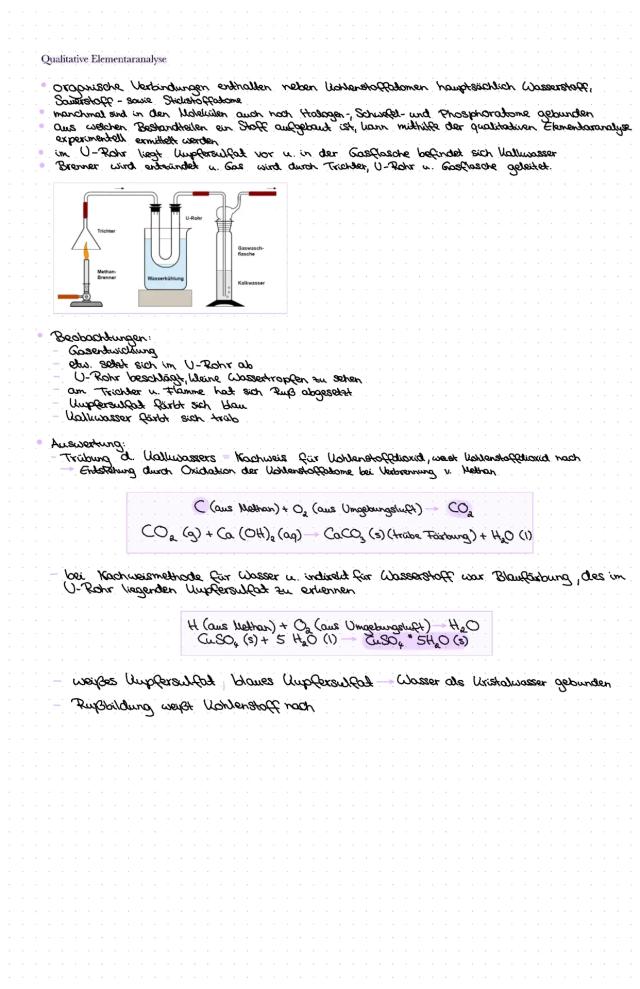 Qualitative Elementaranalyse
organische Verbindungen enthalten neben Kohlenstoffatomen hauptsächlich Wasserstoff,
Sauerstoff- sowie Stickstoffatome
manchmal sind in den Molekülen auch noch Halogen-, Schwefel- und Phosphoratome gebunden
aus welchen Bestandteilen ein Stoff aufgebaut ist, kann mithilfe der qualitativen Elementaranalyse
experimentell ermittelt werden
im U-Rohr liegt Kupfersulfat vor u. in der Gasflasche befindet sich Kalkwasser
Brenner wird entzündet u. Gas wird durch Trichter, U-Rohr u. Gasflasche geleitet.
U-Rohr
Trichter
Gaswasch-
flasche
Methan-
Brenner
Wasserkühlung
Kalkwasser
Beobachtungen:
– Gasentwicklung
– etw. setzt sich im U-Rohr ab
U-Rohr beschlägt, kleine Wassertropfen zu sehen
– am Trichter u. Flamme hat sich Ruß abgesetzt
– Kupfersulfat färbt sich blau
– Kalkwasser färbt sich trüb
Auswertung:
– Trübung d. Kalkwassers = Nachweis für Kohlenstoffdioxid, weist Kohlenstoffdioxid nach
→ Entstehung durch Oxidation der Kohlenstoffatome bei Verbrennung v. Methan
C (aus Methan) + O₂ (aus Umgebungsluft) → CO₂
CO₂ (g) + Ca(OH)₂ (aq) → CaCO₃ (s) (trübe Färbung) + H₂O (l)
– bei Nachweismethode für Wasser u. indirekt für Wasserstoff war Blaufärbung, des im
U-Rohr liegenden Kupfersulfat zu erkennen
H (aus Methan) + O₂ (aus Umgebungsluft) → H₂O
CuSO₄ (s) + 5 H₂O (l) → CuSO₄ * 5H₂O (s)
– weißes Kupfersulfat, blaues Kupfersulfat → Wasser als Kristalwasser gebunden
– Rußbildung weißt Kohlenstoff nach